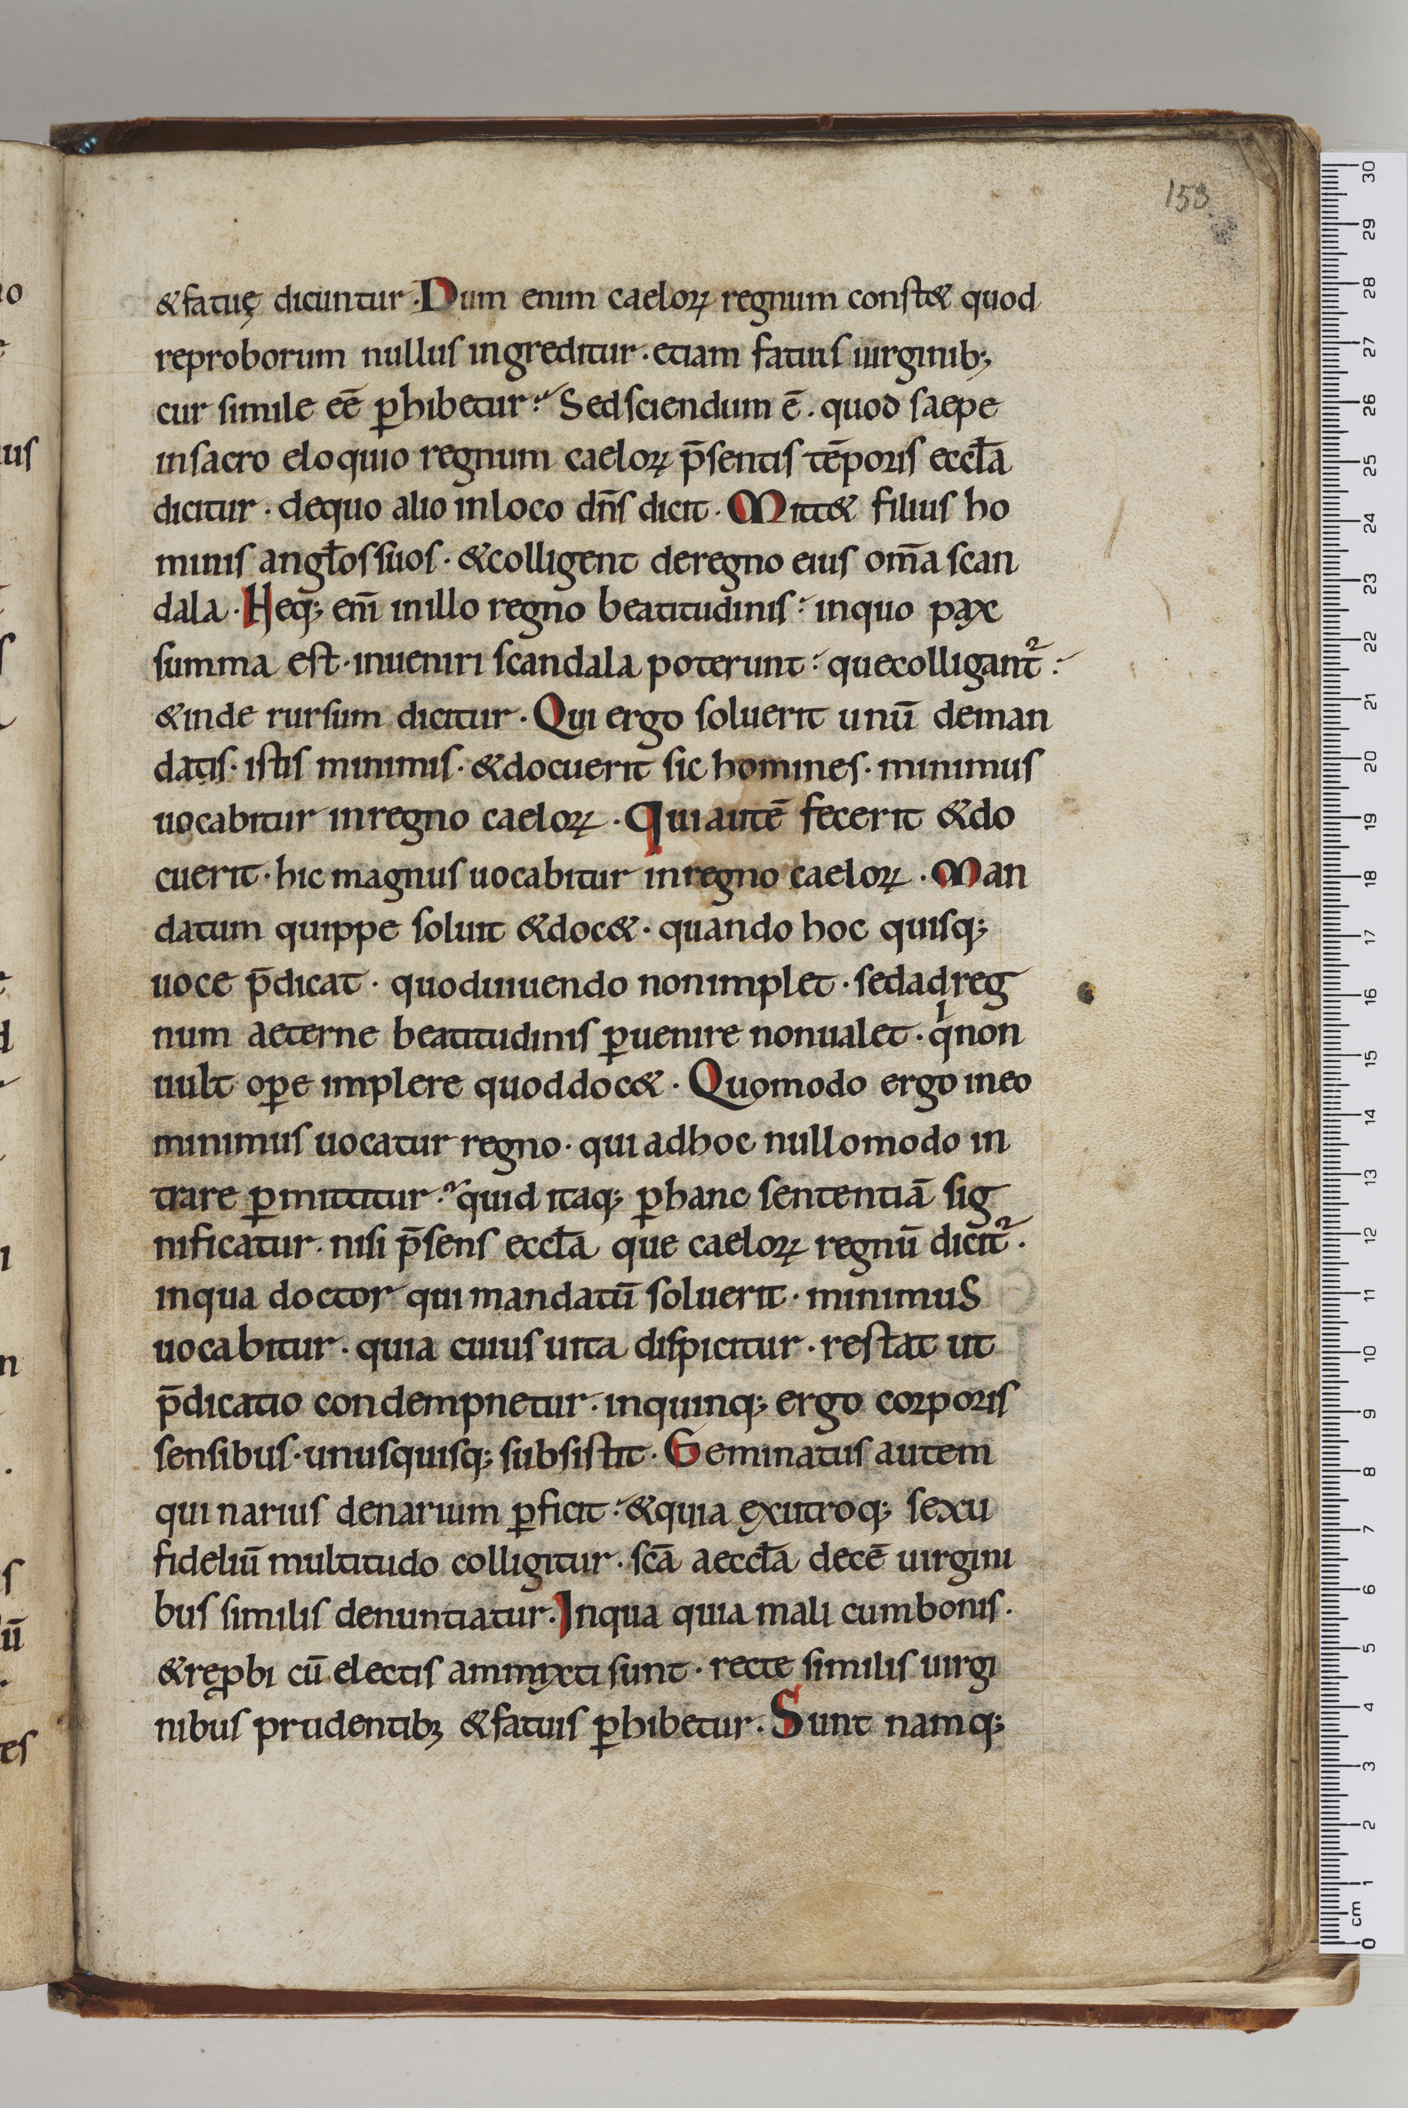 153
&fatuę dicuntur · Dum enim caeloꝝ regnum const& quod
reproborum nullus ingreditur · etiam fatuis uirginib;
cur simile eē ꝑhibetur? Sedsciendum ē · quod saepe
insacro eloquio regnum caeloꝝ p̄sentis tēporis eccła
dicitur · dequo alio inloco dn̄s dicit · Mitt& filius ho
minis angłos suos · &colligent deregno eius om̄a scan
dala · Heq; eni̅ inillo regno beatitudinis · inquo pax
summa est · inueniri scandala poterunt · quecolligant᷑ ·
&inde rursum dicitur · Qui ergo soluerit unū deman
datis · istis minimis · &docuerit sic homines · minimus
uocabitur inregno caeloꝝ · Qui autē fecerit &do
cuerit · hic magnus uocabitur inregno caeloꝝ · Man
datum quippe soluit &doc& · quando hoc quisq;
uoce p̄dicat · quoduiuendo nonimplet · sedadreg
num aeterne beatitudinis ꝑuenire nonualet · qͥnon
uult oꝑe implere quoddoc& · Quomodo ergo ineo
minimus uocatur regno · qui adhoc nullomodo in
trare ꝑmittitur? quid itaq; ꝑhanc sententiā sig
nificatur · nisi p̄sens eccła que caeloꝝ regnū dicit᷑ ·
inqua doctor qui mandatū soluerit · minimuS
uocabitur · quia cuius uita dispicitur · restat ut
p̄dicatio condempnetur · inquinq; ergo corporis
sensibus · unusquisq; subsistit · Geminatus autem
qui narius denarium ꝑficit · &quia exutroq; sexu
fideliū multitudo colligitur · scā aeccła decē uirgini
bus similis denuntiatur · Inqua quia mali cumbonis ·
&reꝓbi cū electis ammyxti sunt · recte similis uirgi
nibus prudentibꝫ &fatuis ꝑhibetur · Sunt namq;